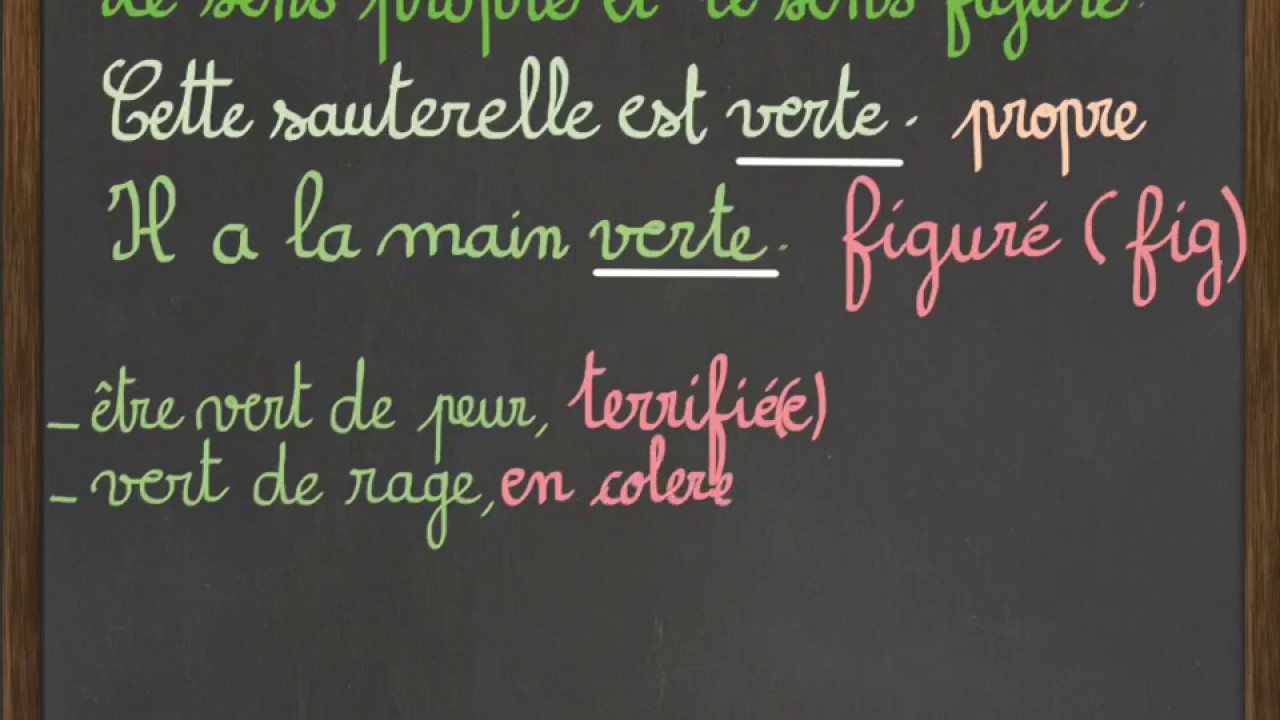 Le sens propre et le sens figuré.
Cette sauterelle est verte. propre
Il a la main verte. figuré (fig)
- être vert de peur, terrifié(e)
- vert de rage, en colere